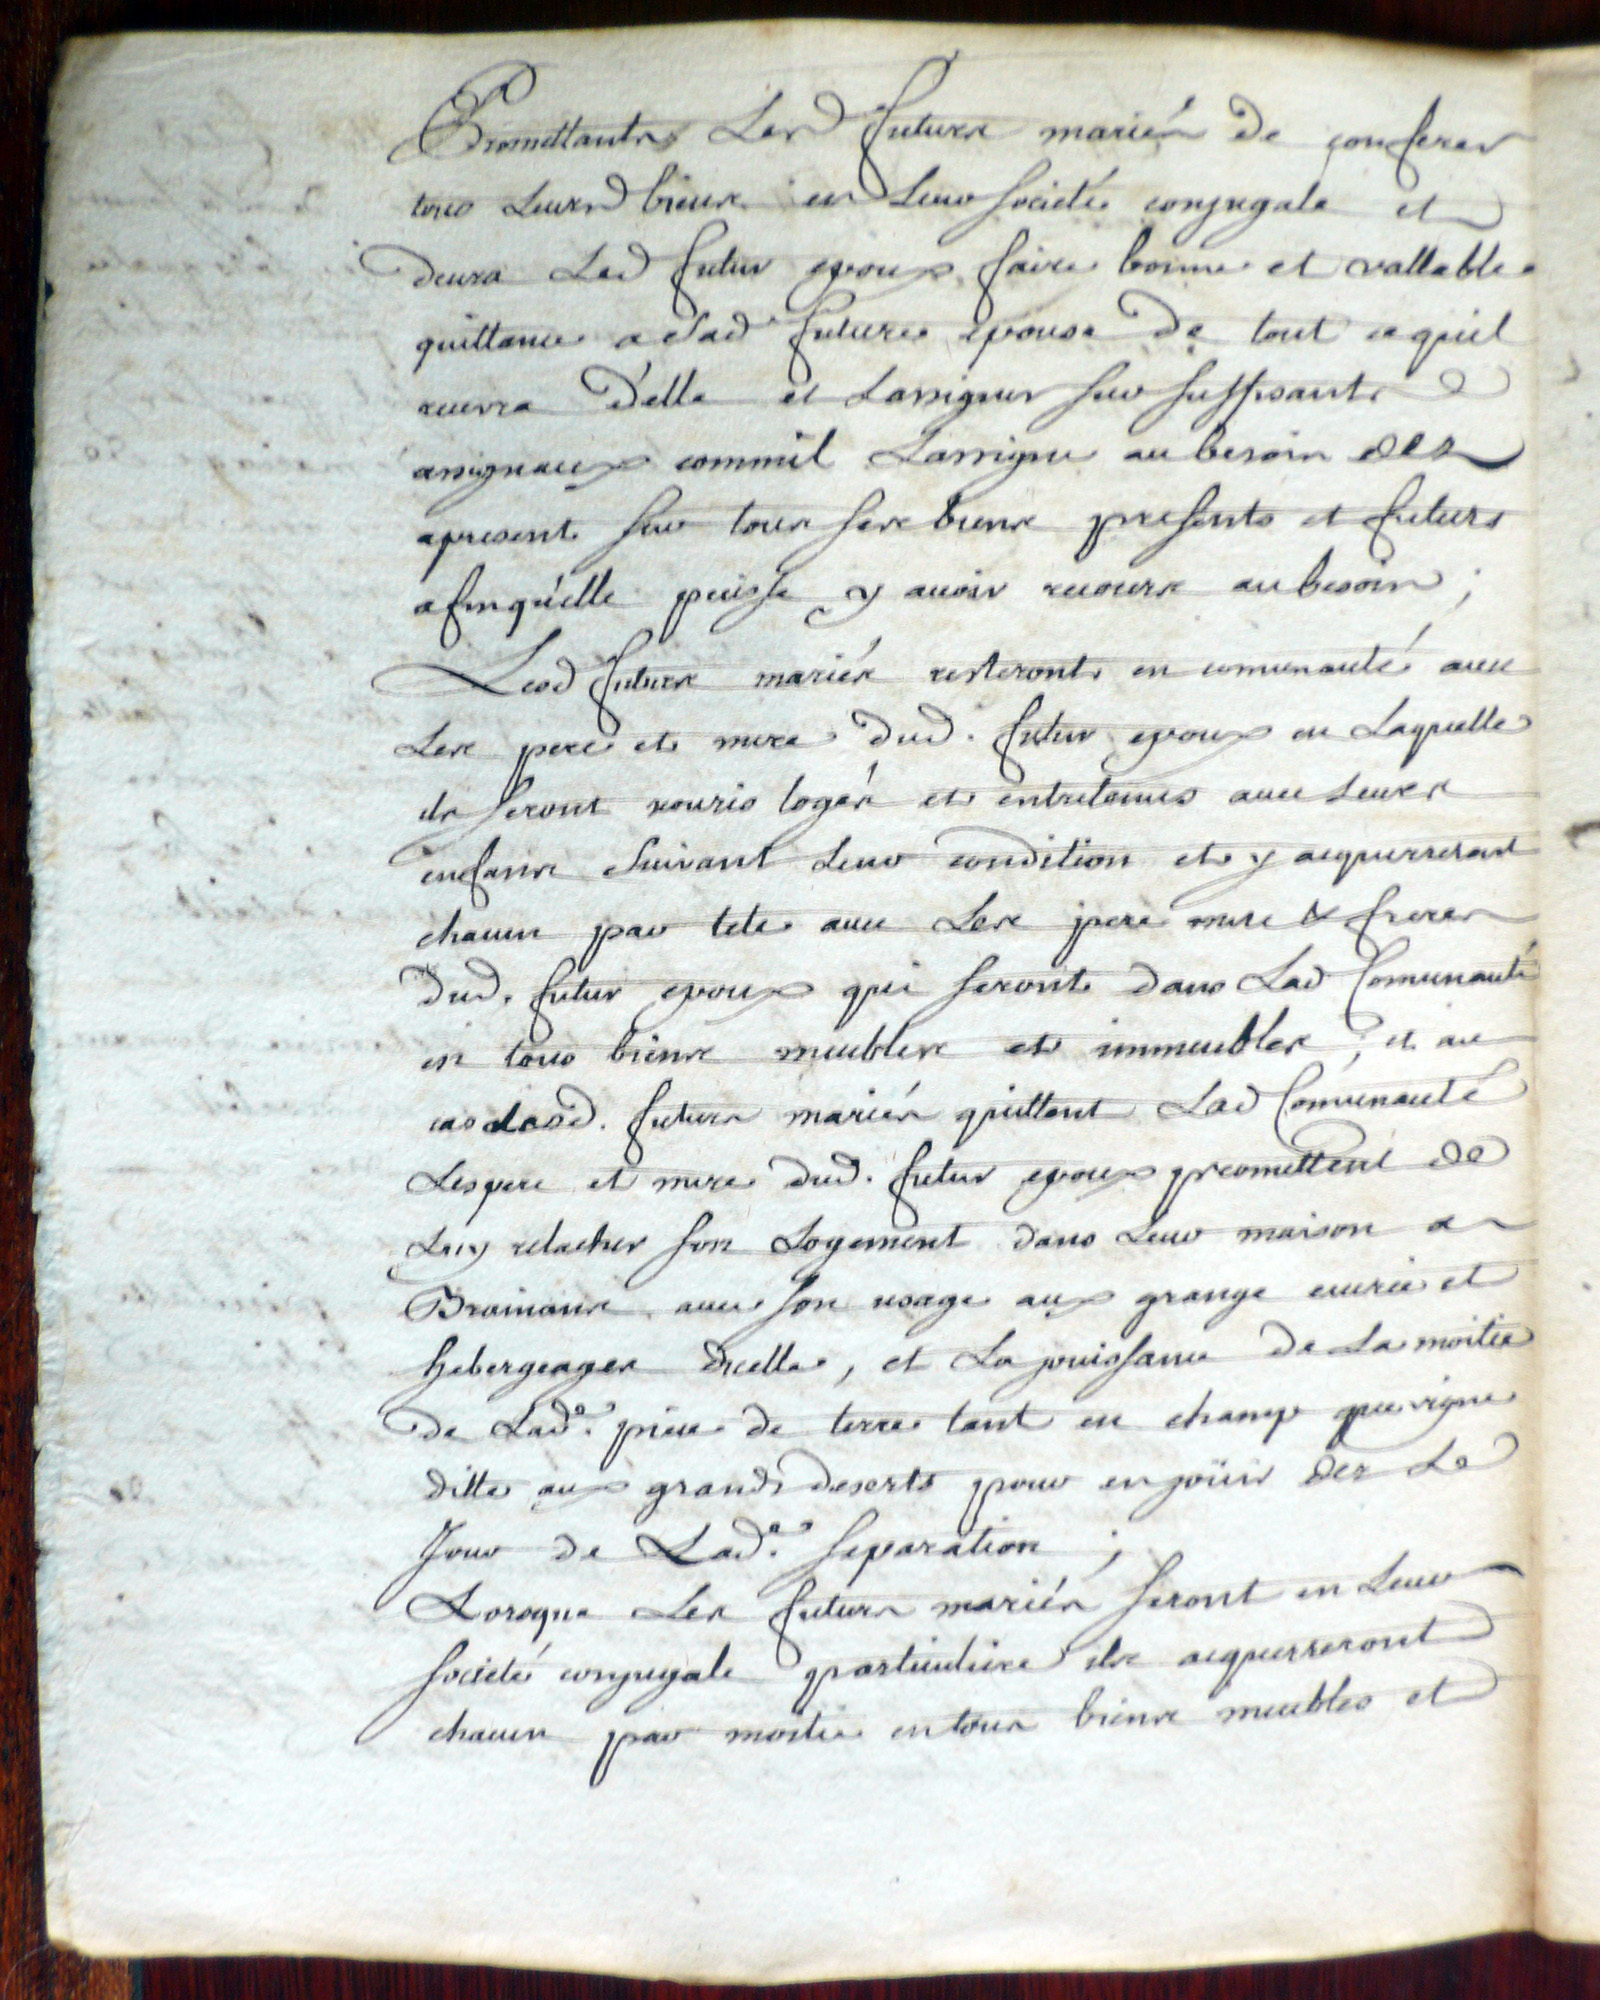 Promettants Lesd futurs mariés de conferer
tous Leursd biens en Leur societé conjugale et
devra Led futur epoux faire bonne et vallable
quittance a Sad.e future epouse de tout ce quil
recevra d'elle et Lassigner sur suffisants
assignaux comme il Lassigne au besoin des
apresent sur tous ses biens presents et futurs
afinquelle puisse y avoir recours au besoin ;
Lesd futurs mariés resteront en comunauté avec
Les pere et mere dud. futur epoux en Laquelle
ils seront nouris logés et entretenus avec Leurs
enfans Suivant Leur condition et y acquerreront
chacun par tete avec Les pere mere & freres
dud. futur epoux qui seront dans Lad Comunauté
en tous biens meubles et immeubles ; et au
cas Lesd. futurs mariés quittent Lad Comunauté
Les pere et mere dud. futur epoux promettent de
Luy relacher son Logement dans Leur maison a
Brainans avec son usage aux grange ecurie et
hebergeages dicelle, et La jouissance de La moitie
de Lad.e piece de terre tant en champ que vigne
ditte aux grands deserts pour en joüir des Le
Jour de Lad.e separation ;
Lorsque Les futurs mariés seront en Leur
societé conjugale particuliere ils acquerreront
chacun par moitie en tous biens meubles et